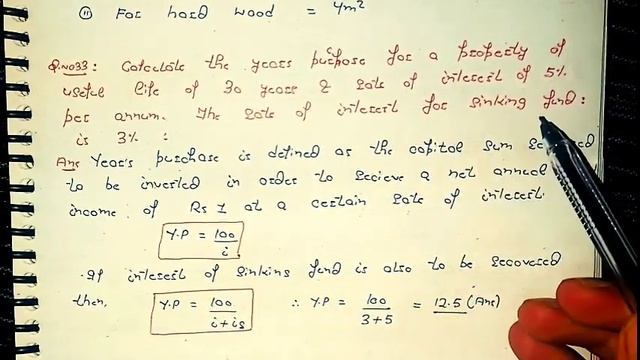 (ii) For hard wood = 4m²
Q.No33: Calculate the years purpose for a property of
useful life of 30 years & rate of interest of 5%
per annum. The rate of interest for sinking fund:
is 3% :
Ans Year's purchase is defined as the capital sum
to be invested in order to recieve a net annual
income of Rs 1 at a certain rate of interest.
Y.P = 100/i
If interest of sinking fund is also to be recovered
then, Y.P = 100/i+is ∴ Y.P = 100/3+5 = 12.5 (Ans)